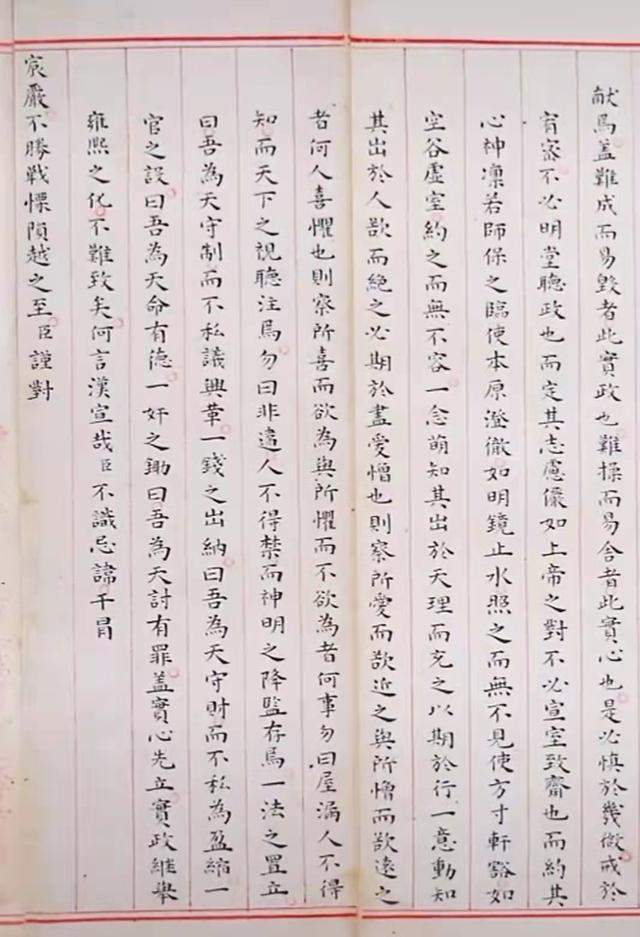 献焉蓋難成而易毀者此實政也難操而易舍者此實心也是必慎於幾微戒於
宥密不必明堂聽政也而定其志慮儼如上帝之對不必宣室致齋也而約其
心神凜若師保之臨使本原澄徹如明鏡止水照之而無不見使方寸軒豁如
空谷虛室約之而無不容一念萌知其出於天理而充之以期於行一意動知
其出於人欲而絕之必期於盡愛憎也則察所愛而欲近之與所憎而欲遠之
者何人喜懼也則察所喜而欲為與所懼而不欲為者何事勿曰屋漏人不得
知而天下之視聽注焉勿曰非違人不得禁而神明之降監存焉一法之置立
曰吾為天守制而不私議興革一錢之出納曰吾為天守財而不私為盈縮一
官之設曰吾為天命有德一奸之鋤曰吾為天討有罪蓋實心先立實政繼舉
雍熙之化不難致矣何言漢宣哉臣不識忌諱干冒
宸嚴不勝戰慄隕越之至臣謹對